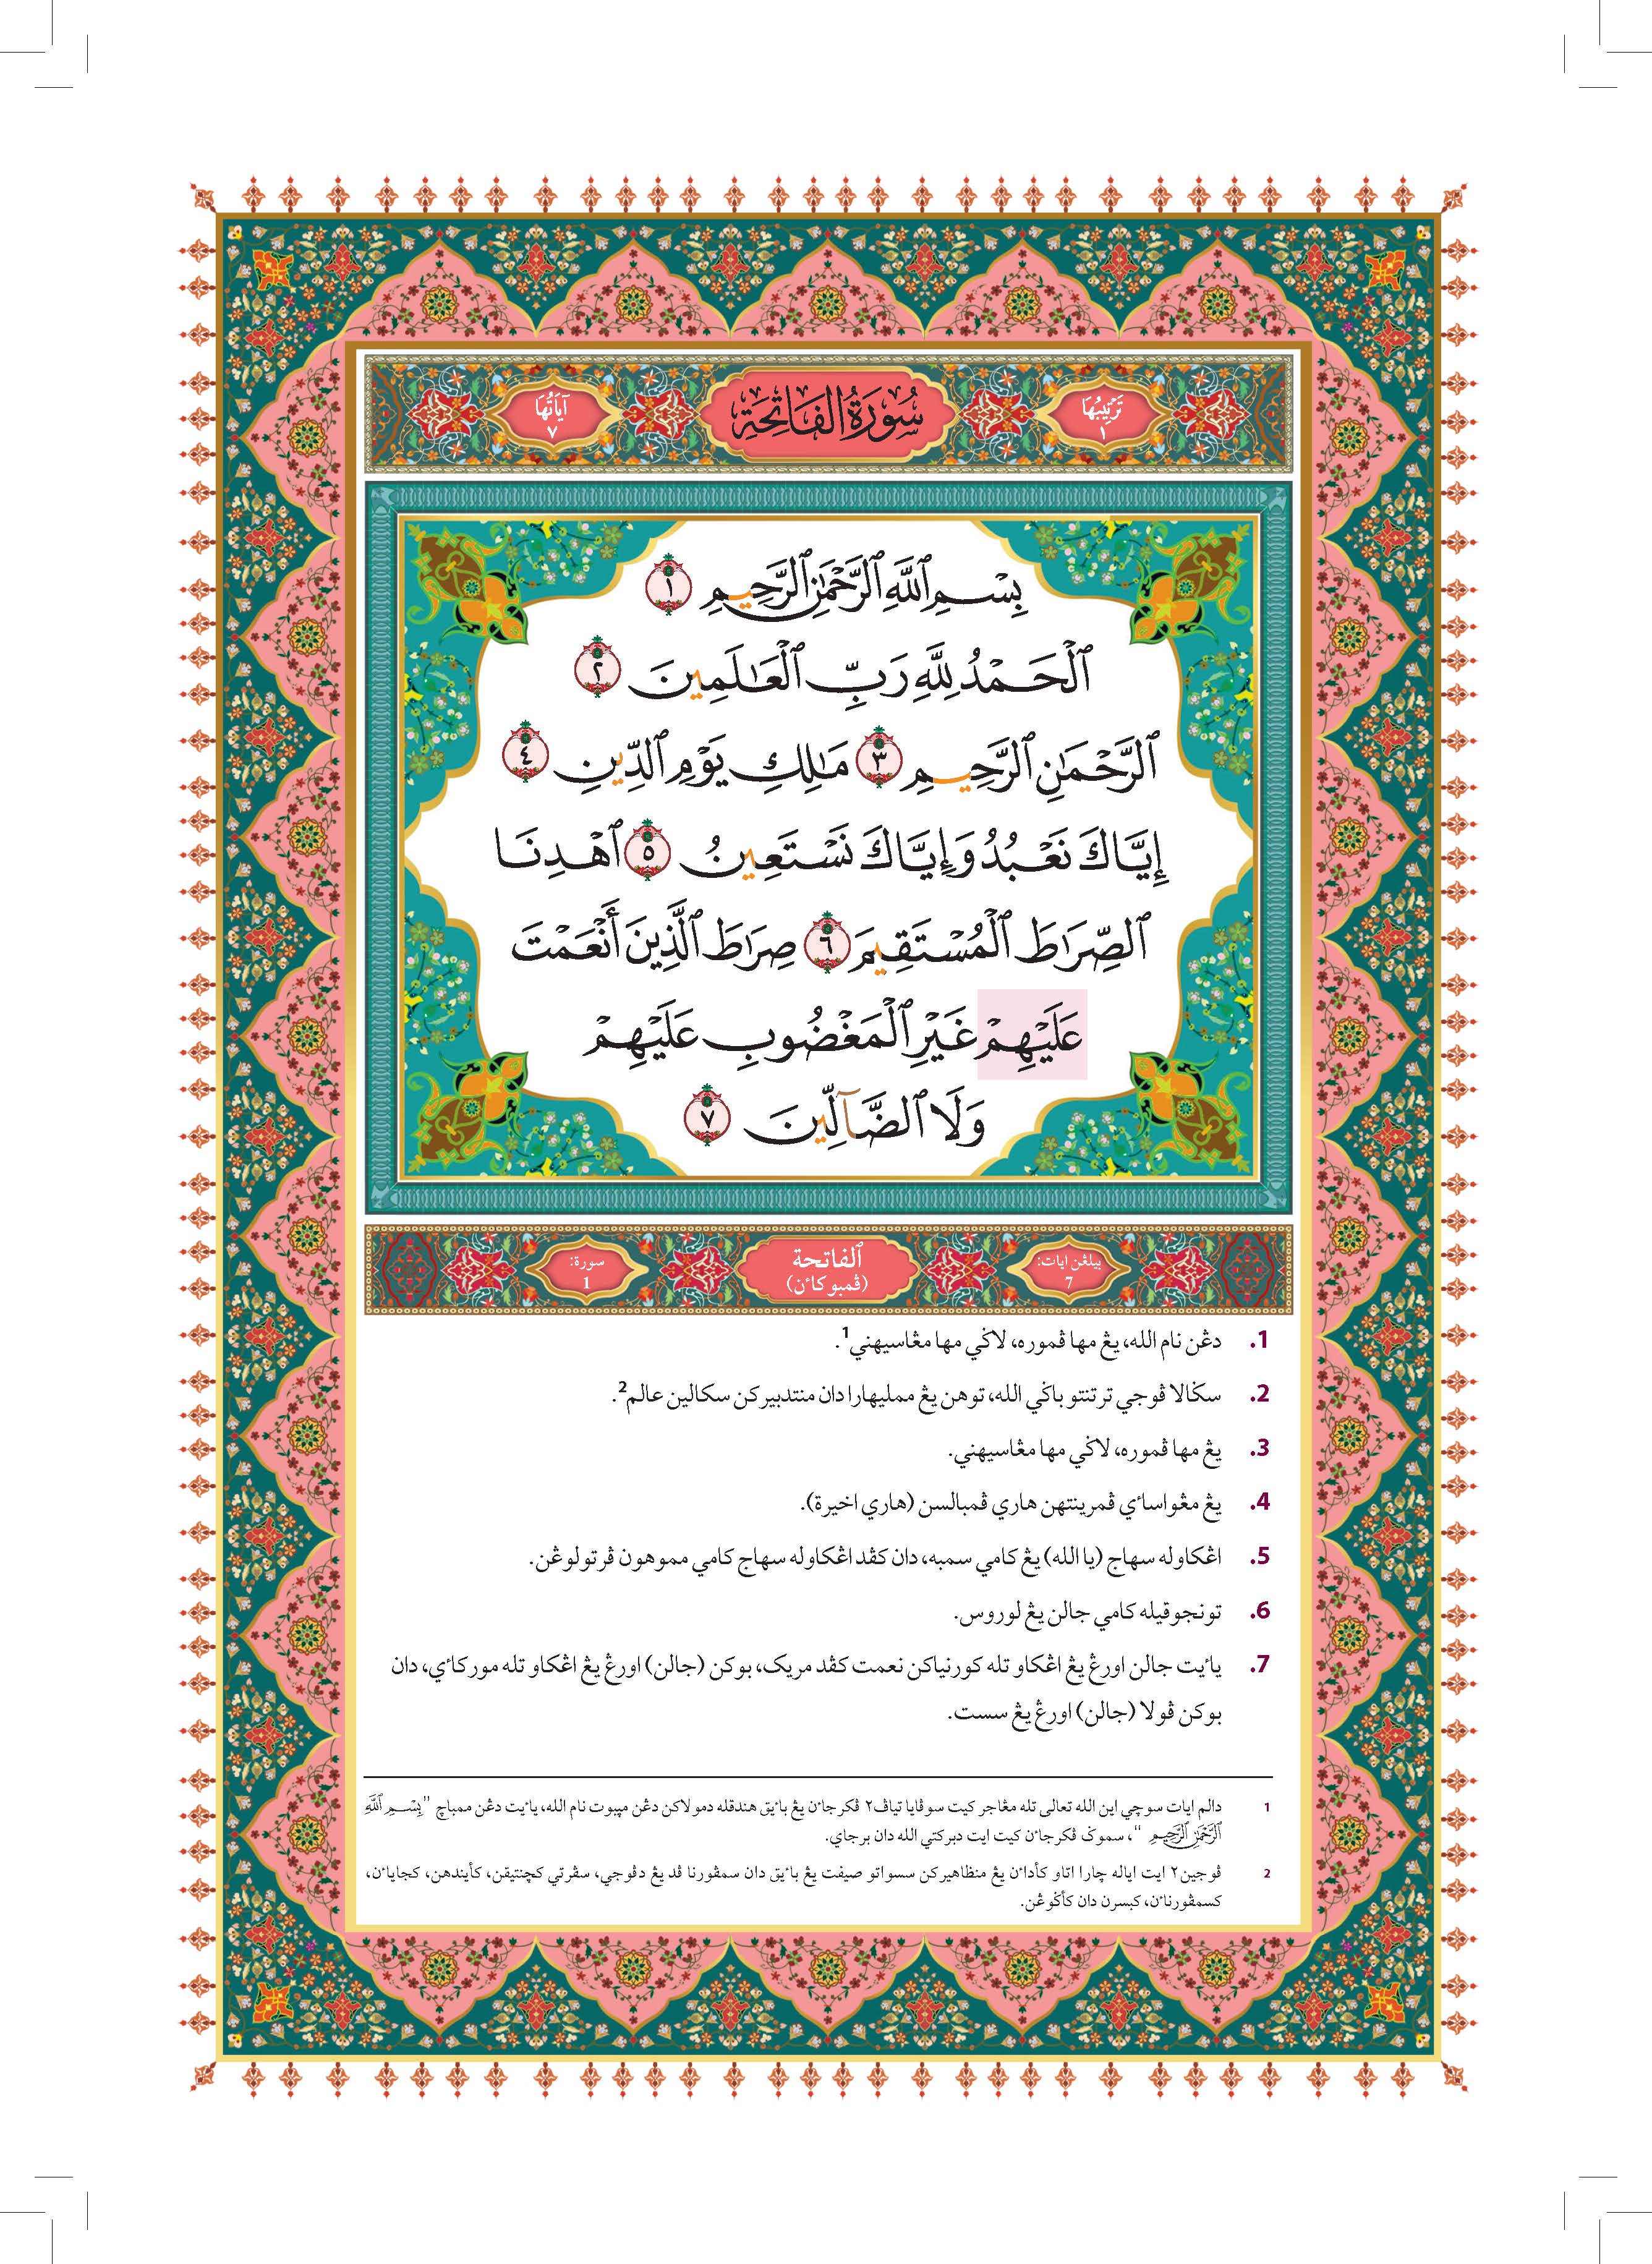 تَرْتِيبُهَا
١
سُورَةُ الفَاتِحَةِ
آيَاتُهَا
٧
بِسْمِ ٱللَّهِ ٱلرَّحْمَٰنِ ٱلرَّحِيمِ ١
ٱلْحَمْدُ لِلَّهِ رَبِّ ٱلْعَٰلَمِينَ ٢
ٱلرَّحْمَٰنِ ٱلرَّحِيمِ ٣ مَٰلِكِ يَوْمِ ٱلدِّينِ ٤
إِيَّاكَ نَعْبُدُ وَإِيَّاكَ نَسْتَعِينُ ٥ ٱهْدِنَا
ٱلصِّرَٰطَ ٱلْمُسْتَقِيمَ ٦ صِرَٰطَ ٱلَّذِينَ أَنْعَمْتَ
عَلَيْهِمْ غَيْرِ ٱلْمَغْضُوبِ عَلَيْهِمْ
وَلَا ٱلضَّآلِّينَ ٧
بيلڠن ايات:
7
ٱلفاتحة
(ڤمبوكاءن)
سورة:
1
1. دڠن نام الله، يڠ مها ڤموره، لاݢي مها مڠاسيهني1.
2. سݢالا ڤوجي ترتنتو باݢي الله، توهن يڠ ممليهارا دان منتدبيركن سكالين عالم2.
3. يڠ مها ڤموره، لاݢي مها مڠاسيهني.
4. يڠ مڠواساءي ڤمرينتهن هاري ڤمبالسن (هاري اخيرة).
5. اڠكاوله سهاج (يا الله) يڠ كامي سمبه، دان كڤد اڠكاوله سهاج كامي مموهون ڤرتولوڠن.
6. تونجوقيله كامي جالن يڠ لوروس.
7. ياءيت جالن اورڠ يڠ اڠكاو تله كورنياكن نعمت كڤد مريک، بوكن (جالن) اورڠ يڠ اڠكاو تله موركاءي، دان
بوكن ڤولا (جالن) اورڠ يڠ سست.
1 دالم ايات سوچي اين الله تعالى تله مڠاجر كيت سوڤايا تياڤ٢ ڤكرجاءن يڠ باءيق هندقله دمولاكن دڠن مڽبوت نام الله، ياءيت دڠن ممباچ "بِسْمِ ٱللَّهِ
ٱلرَّحْمَٰنِ ٱلرَّحِيمِ "، سموݢ ڤكرجاءن كيت ايت دبركتي الله دان برجاي.
2 ڤوجين٢ ايت اياله چارا اتاو كأداءن يڠ منظاهيركن سسواتو صيفت يڠ باءيق دان سمڤورنا ڤد يڠ دڤوجي، سڤرتي كچنتيقن، كأيندهن، كجاياءن،
كسمڤورناءن، كبسرن دان كأݢوڠن.